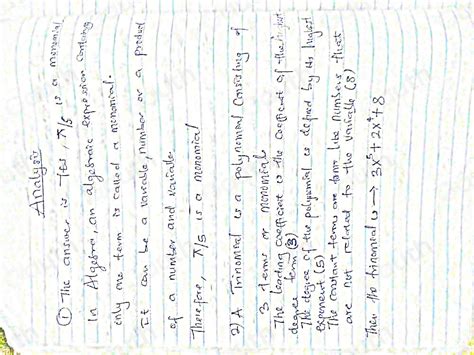 Analysis
① The answer is Yes, π/5 is a monomial
In Algebra, an algebraic expression containing
only one term is called a monomial.
It can be a variable, number or a product
of a number and variable.
Therefore, π/5 is a monomial
2) A Trinomial is a polynomial consisting of
3 terms or monomials
The leading coefficient is the coefficient of the highest
degree term (3)
The degree of the polynomial is defined by its highest
exponent (5)
The constant terms are terms like numbers that
are not related to the variable (8)
Then the trinomial is → 3x⁵ + 2x⁴ + 8